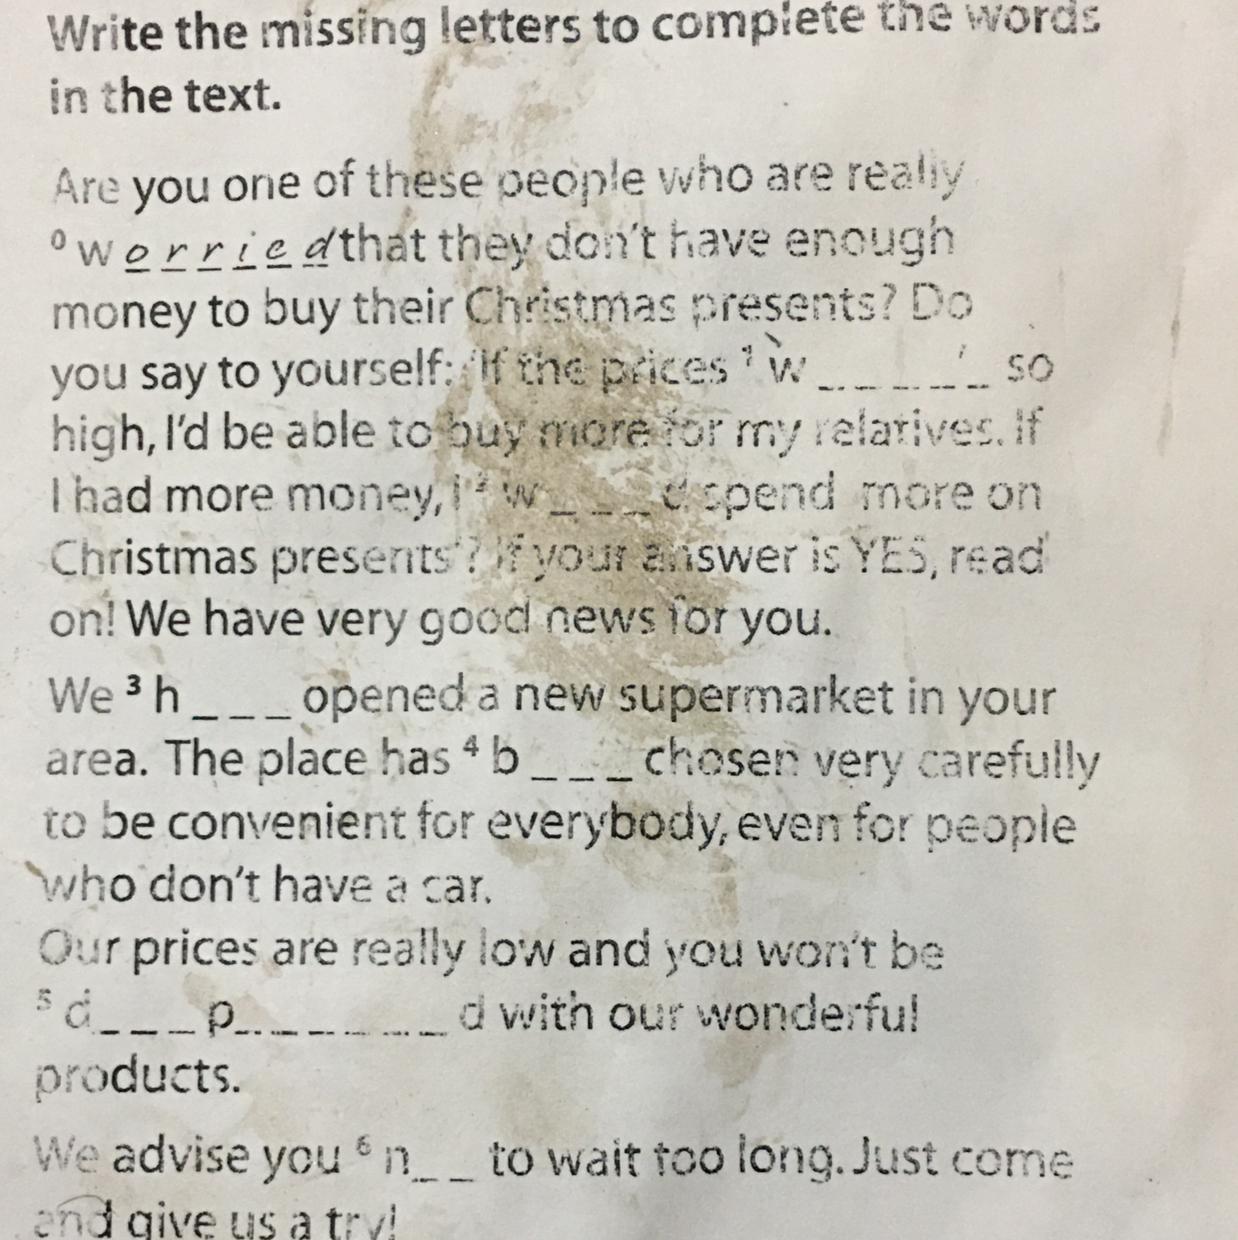 Write the missing letters to complete the words
in the text.
Are you one of these people who are really
⁰ w o r r i e d that they don't have enough
money to buy their Christmas presents? Do
you say to yourself: 'If the prices ¹ w _ _ _ _ ' _ so
high, I'd be able to buy more for my relatives. If
I had more money, I ² w _ _ _ d spend more on
Christmas presents'? If your answer is YES, read
on! We have very good news for you.
We ³ h _ _ _ opened a new supermarket in your
area. The place has ⁴ b _ _ _ chosen very carefully
to be convenient for everybody, even for people
who don't have a car.
Our prices are really low and you won't be
⁵ d _ _ _ p _ _ _ _ _ _ d with our wonderful
products.
We advise you ⁶ n _ _ to wait too long. Just come
and give us a try!